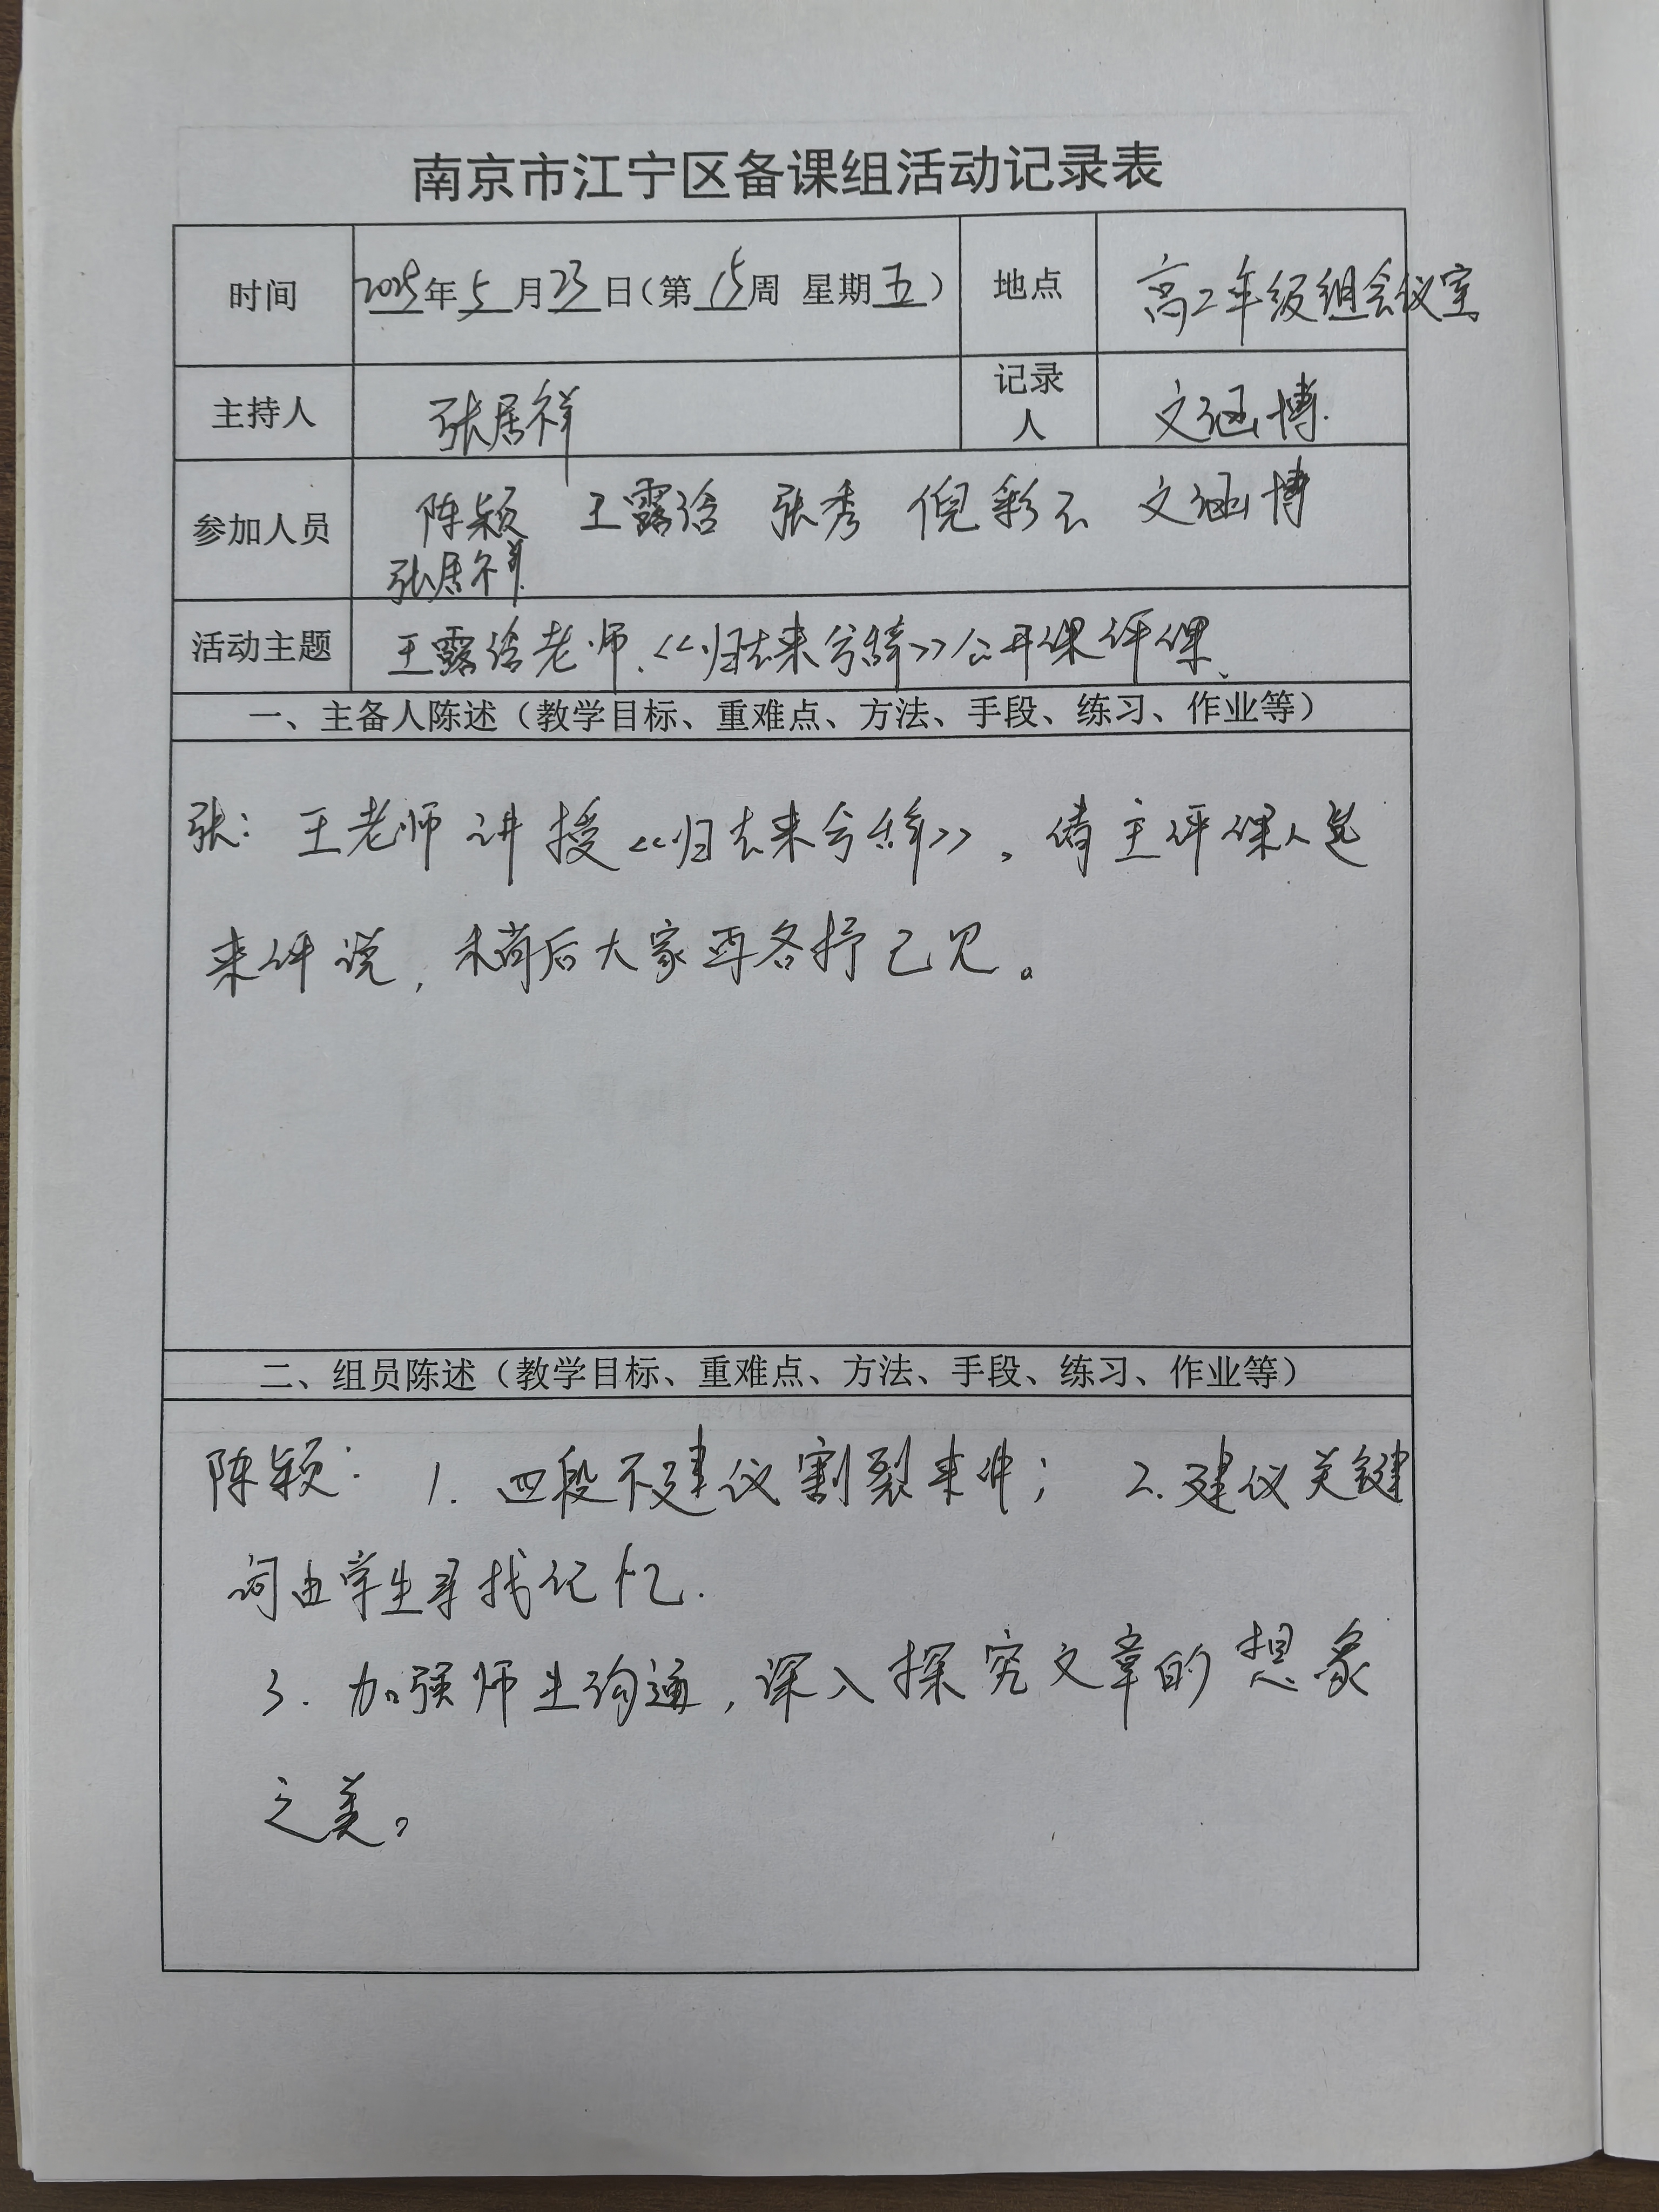 南京市江宁区备课组活动记录表
时间 2025年5月23日（第15周 星期五） 地点 高二年级组会议室
主持人 张居祥 记录人 文涵博
参加人员 陈颖 王露 张秀 倪彩云 文涵博
张居祥
活动主题 王露 老师《归去来兮辞》公开课评课
一、主备人陈述（教学目标、重难点、方法、手段、练习、作业等）
张：王老师讲授《归去来兮辞》。请主评课人先
来评说，稍后大家再各抒己见。
二、组员陈述（教学目标、重难点、方法、手段、练习、作业等）
陈颖：1. 四段不建议割裂来讲；2. 建议关键
词由学生寻找记忆.
3. 加强师生沟通，深入探究文章的想象
之美。